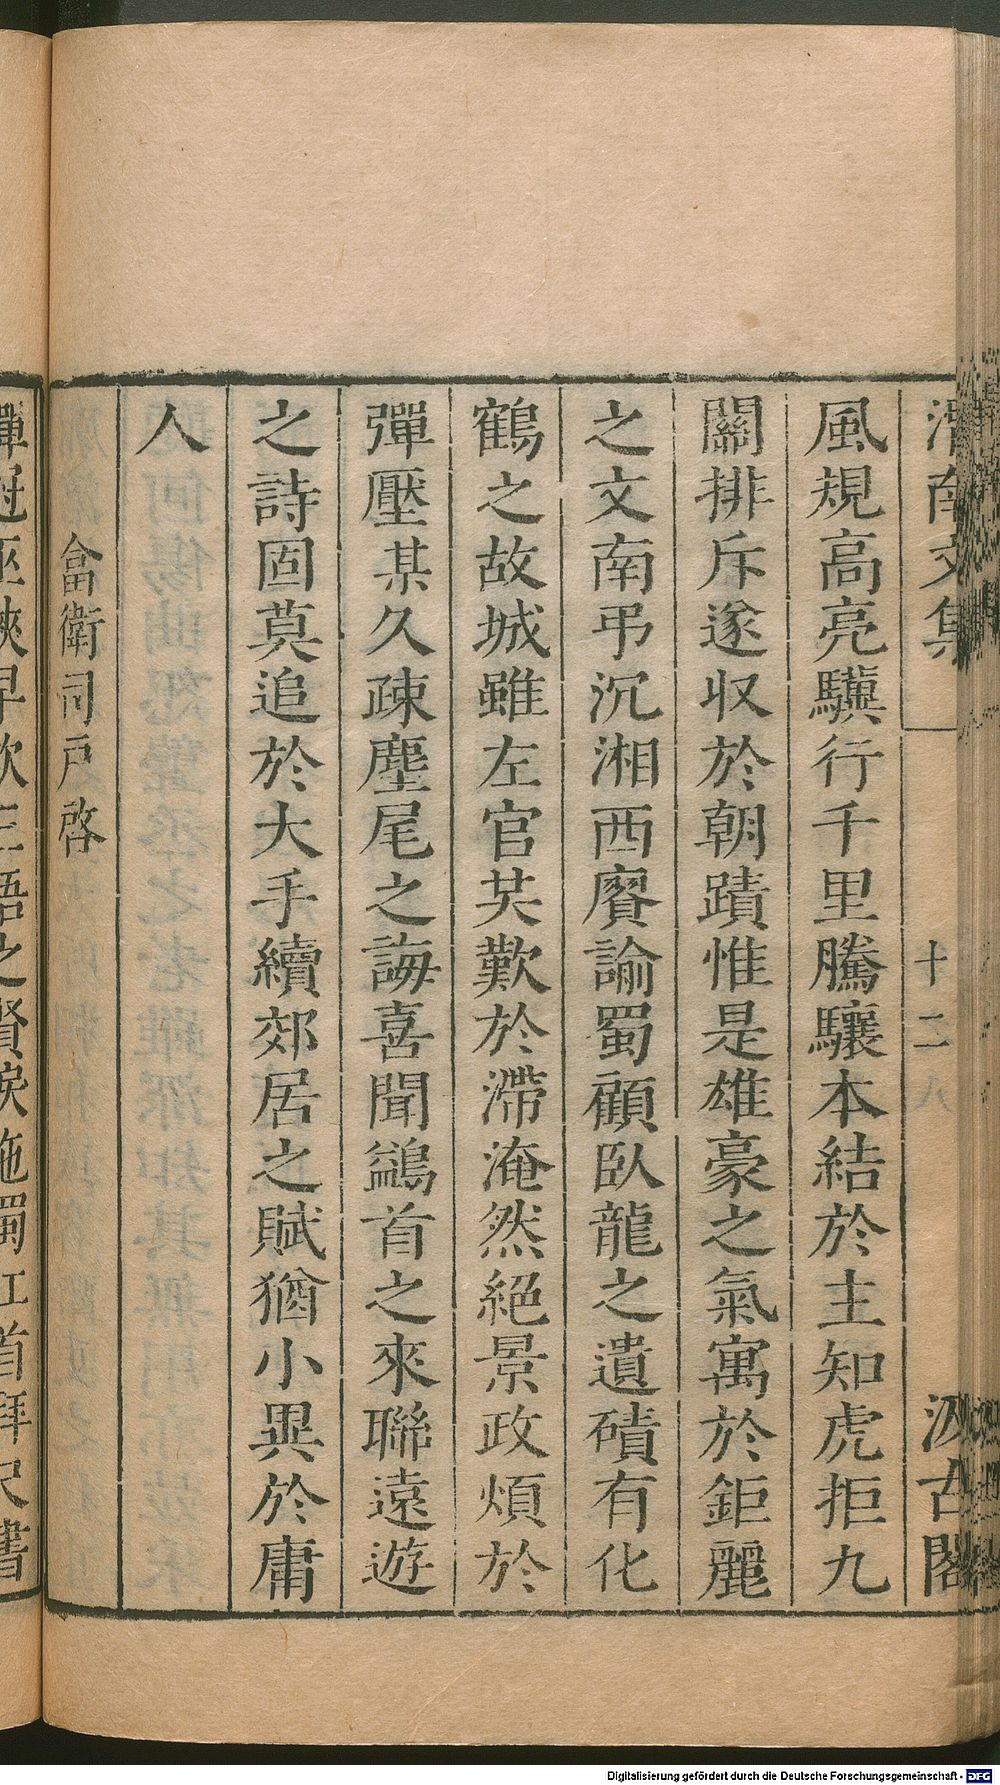 渭南文集 十二 八 汲古閣
風規高亮驥行千里騰驤本結於主知虎拒九
關排斥遂収於朝蹟惟是雄豪之氣寓於鉅麗
之文南弔沉湘西賡諭蜀顧臥龍之遺磧有化
鶴之故城雖左官共歎於滯淹然絕景政煩於
彈壓某久疎麈尾之誨喜聞鷁首之來聯遠遊
之詩固莫追於大手續郊居之賦猶小異於庸
人
畣衛司戶啓
之賢
蜀江首拜尺書
Digitalisierung gefördert durch die Deutsche Forschungsgemeinschaft - DFG